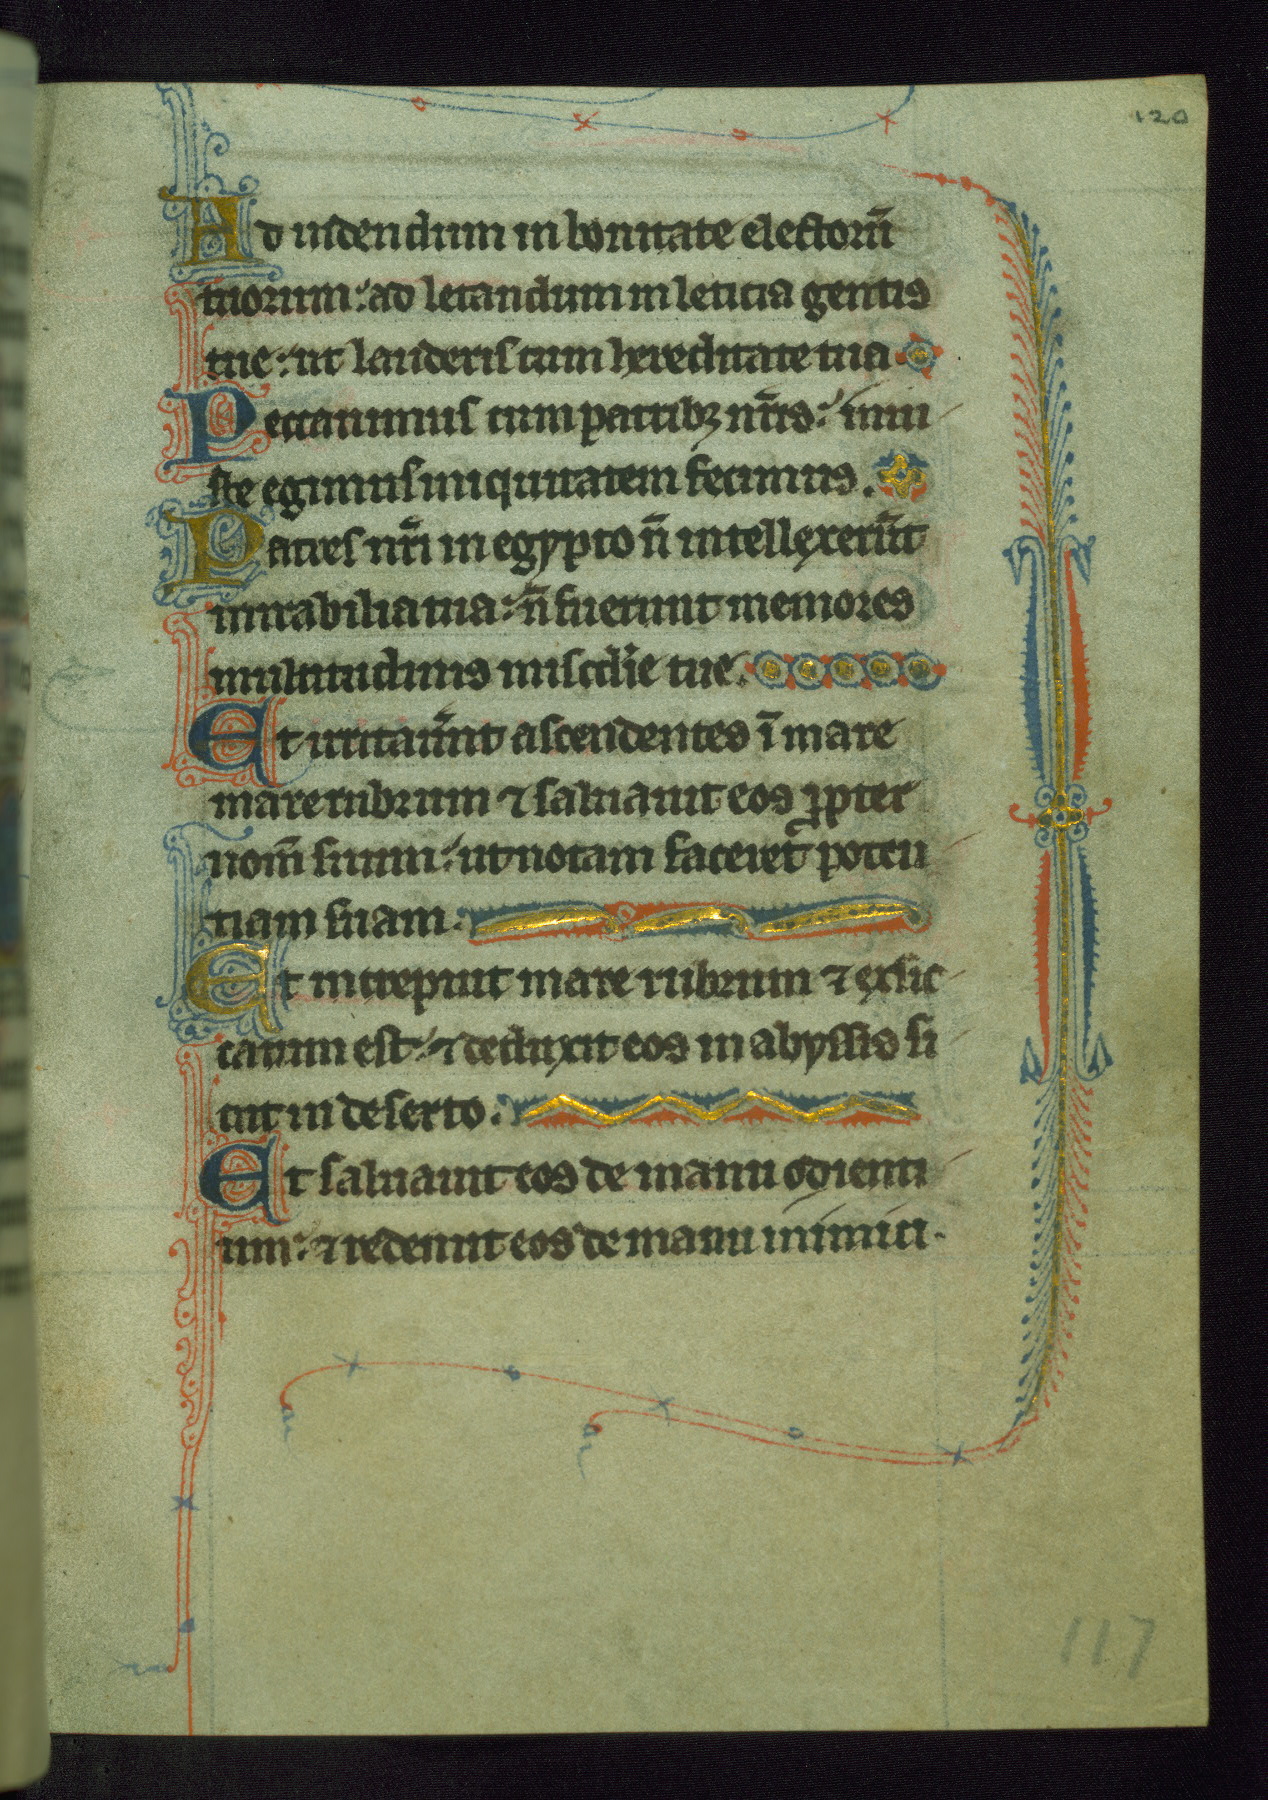 120
Ad uidendum in bonitate electorū
tuorum: ad letandum in leticia gentis
tue: ut lauderis cum hereditate tua
Peccauimus cum patribꝫ nr̄is: iniu
ste egimus iniquitatem fecimus.
Patres nr̄i in egypto n̄ intellexerūt
mirabilia tua: n̄ fuerunt memores
multitudinis miscd̄ie tue.
Et irritauer̄unt ascendentes ī mare
mare rubrum ⁊ saluauit eos ꝓpter
nom̄ suum: ut notam faceret poten
tiam suam.
Et increpuit mare rubrum ⁊ exsic
catum est: ⁊ deduxit eos in abyssis si
cut in deserto.
Et saluauit eos de manu odienti
um: ⁊ redemit eos de manu inimici.
117